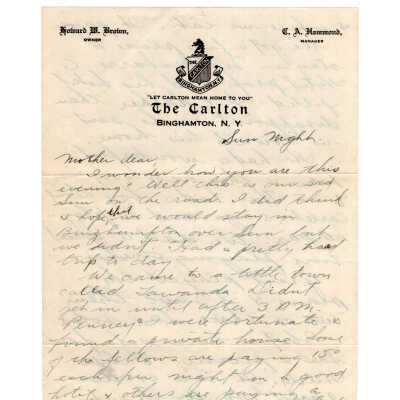 Howard W. Brown,
OWNER
C. A. Hammond,
MANAGER
THE CARLTON
BINGHAMTON, N.Y.
"LET CARLTON MEAN HOME TO YOU"
The Carlton
BINGHAMTON, N. Y.
Sun Night.
Mother dear,
I wonder how you are this
evening? Well this is our 3rd
Sun on the road. I did think
& hope that we would stay in
Binghampton over Sun but
we didn't. Had a pretty hard
trip to day.
We came to a little town
called Towanda. Didn't
get in until after 3 A.M.
Penney & I were fortunate &
found a private house. Some
of the fellows are paying 1.50
each per night in a good
hotel & others are paying a